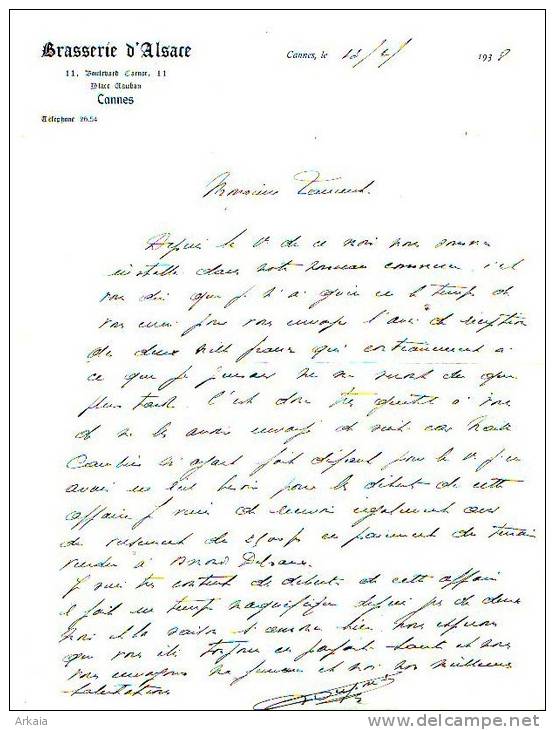 Brasserie d'Alsace
11, Boulevard Carnot, 11
Place Vauban
Cannes
Téléphone 26.54
Cannes, le 12/4/ 1938
Monsieur
Depuis le 1º de ce mois nous sommes
installé dans notre nouveau commerce, c'est
vous dire que je n'ai guère eu le temps de
vous pour vous l'avis de réception
des deux mille francs qui contrairement à
ce que je pensais ne me sont dû que
plus tard. C'est donc très gentil à vous
de me les avoir envoyé de suite car
ayant fait défaut pour le 1º j'en
avais besoin pour les débuts de cette
affaire, je viens de recevoir également avis
du versement de en paiement du terrain
vendu à
Je suis très content des débuts de cette affaire
il fait un temps magnifique depuis près de deux
mois et la saison s'annonce bien, nous espérons
que vous êtes toujours en parfaite santé et nous
vous envoyons ma femme et moi nos meilleures
salutations
Arkaia
www.delcampe.net